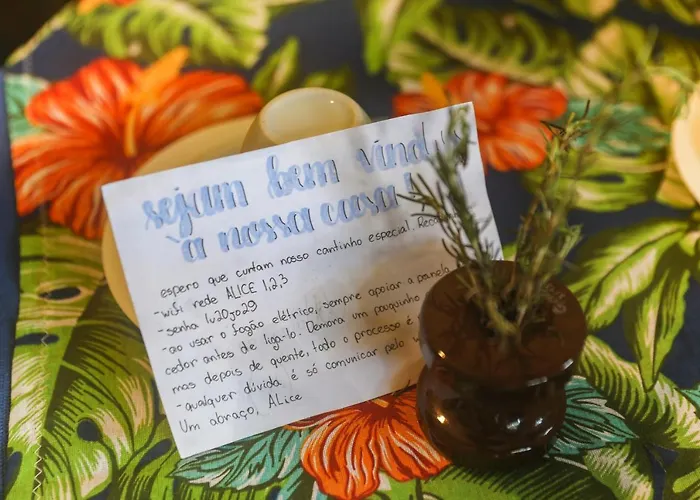 sejam bem vindos
à nossa casa!
espero que curtam nosso cantinho especial.
-wifi rede ALICE 1,2,3
-senha
-ao usar o fogão elétrico, sempre apoiar a panela
cedor antes de liga-lo. Demora um pouquinho
mas depois de quente, todo o processo é
-qualquer dúvida é só comunicar pelo
Um abraço, ALice